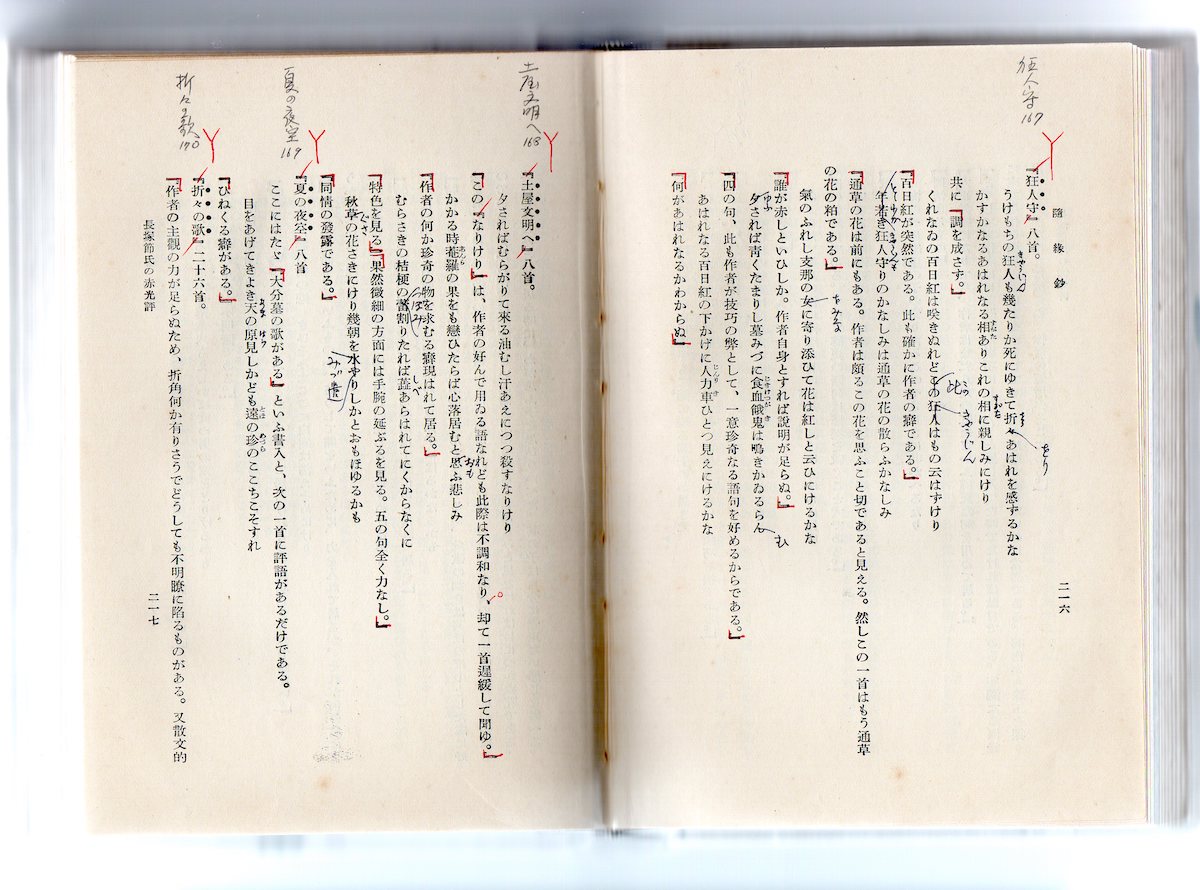 狂人守
167
隨緣鈔
二一六
『狂人守』八首。
うけもちの狂人も幾たりか死にゆきて折々あはれを感ずるかな
きやうじん
をり
かすかなるあはれなる相ありこれの相に親しみにけり
すがた
すがた
共に『調を成さず。』
くれなゐの百日紅は咲きぬれどこの狂人はもの云はずけり
此の
きやうじん
『百日紅が突然である。此も確かに作者の癖である。』
年若き狂人守りのかなしみは通草の花の散らふかなしみ
『通草の花は前にもある。作者は頗るこの花を思ふこと切であると見える。然しこの一首はもう通草
の花の粕である。』
氣のふれし支那の女に寄り添ひて花は紅しと云ひにけるかな
をみな
『誰が赤しといひしか。作者自身とすれば說明が足らぬ。』
夕されば靑くたまりし墓みづに食血餓鬼は鳴きかゐるらん
ゆふ
じきけつがき
む
『四の句、此も作者が技巧の弊として、一意珍奇なる語句を好めるからである。』
あはれなる百日紅の下かげに人力車ひとつ見えにけるかな
じんりきしや
『何があはれなるかわからぬ』
土屋文明へ
168
『土屋文明へ』八首。
夕さればむらがりて來る油むし汗あえにつつ殺すなりけり
『この『なりけり』は、作者の好んで用ゐる語なれども此際は不調和なり、却て一首遲緩して聞ゆ。』
かかる時菴羅の果をも戀ひたらば心落居むと思ふ悲しみ
あんら
おも
『作者の何か珍奇の物を求むる癖現はれて居る。』
むらさきの桔梗の蕾割りたれば蕋あらはれてにくからなくに
つぼみ
しべ
『特色を見る』『果然微細の方面には手腕の延ぶるを見る。五の句全く力なし。』
秋草の花さきにけり幾朝を水やりしかとおもほゆるかも
みづ遣
『同情の發露である。』
夏の夜空
169
『夏の夜空』八首
ここにはたゞ『大分墓の歌がある』といふ書入と、次の一首に評語があるだけである。
目をあげてきよき天の原見しかども遠の珍のここちこそすれ
あま はら
とほ めづら
『ひねくる癖がある。』
折々の歌
170
『折々の歌』二十六首。
『作者の主觀の力が足らぬため、折角何か有りさうでどうしても不明瞭に陷るものがある。又散文的
長塚節氏の赤光評
二一七